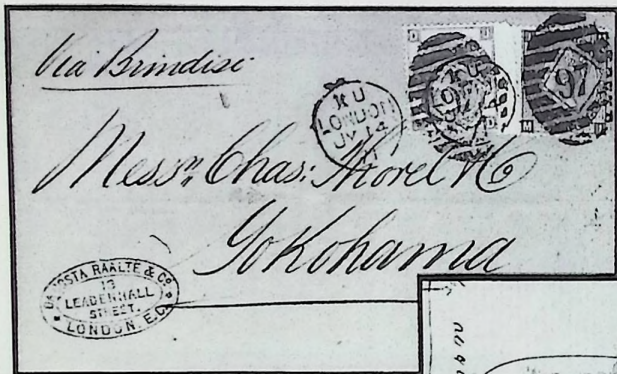 Via Brindisi
KU
LONDON
JY 14
97
97
M
Messrs Chas: Thorel & Co
Yokohama
COSTA RAALTE & Co
13
LEADENHALL
STREET.
LONDON. E.C.